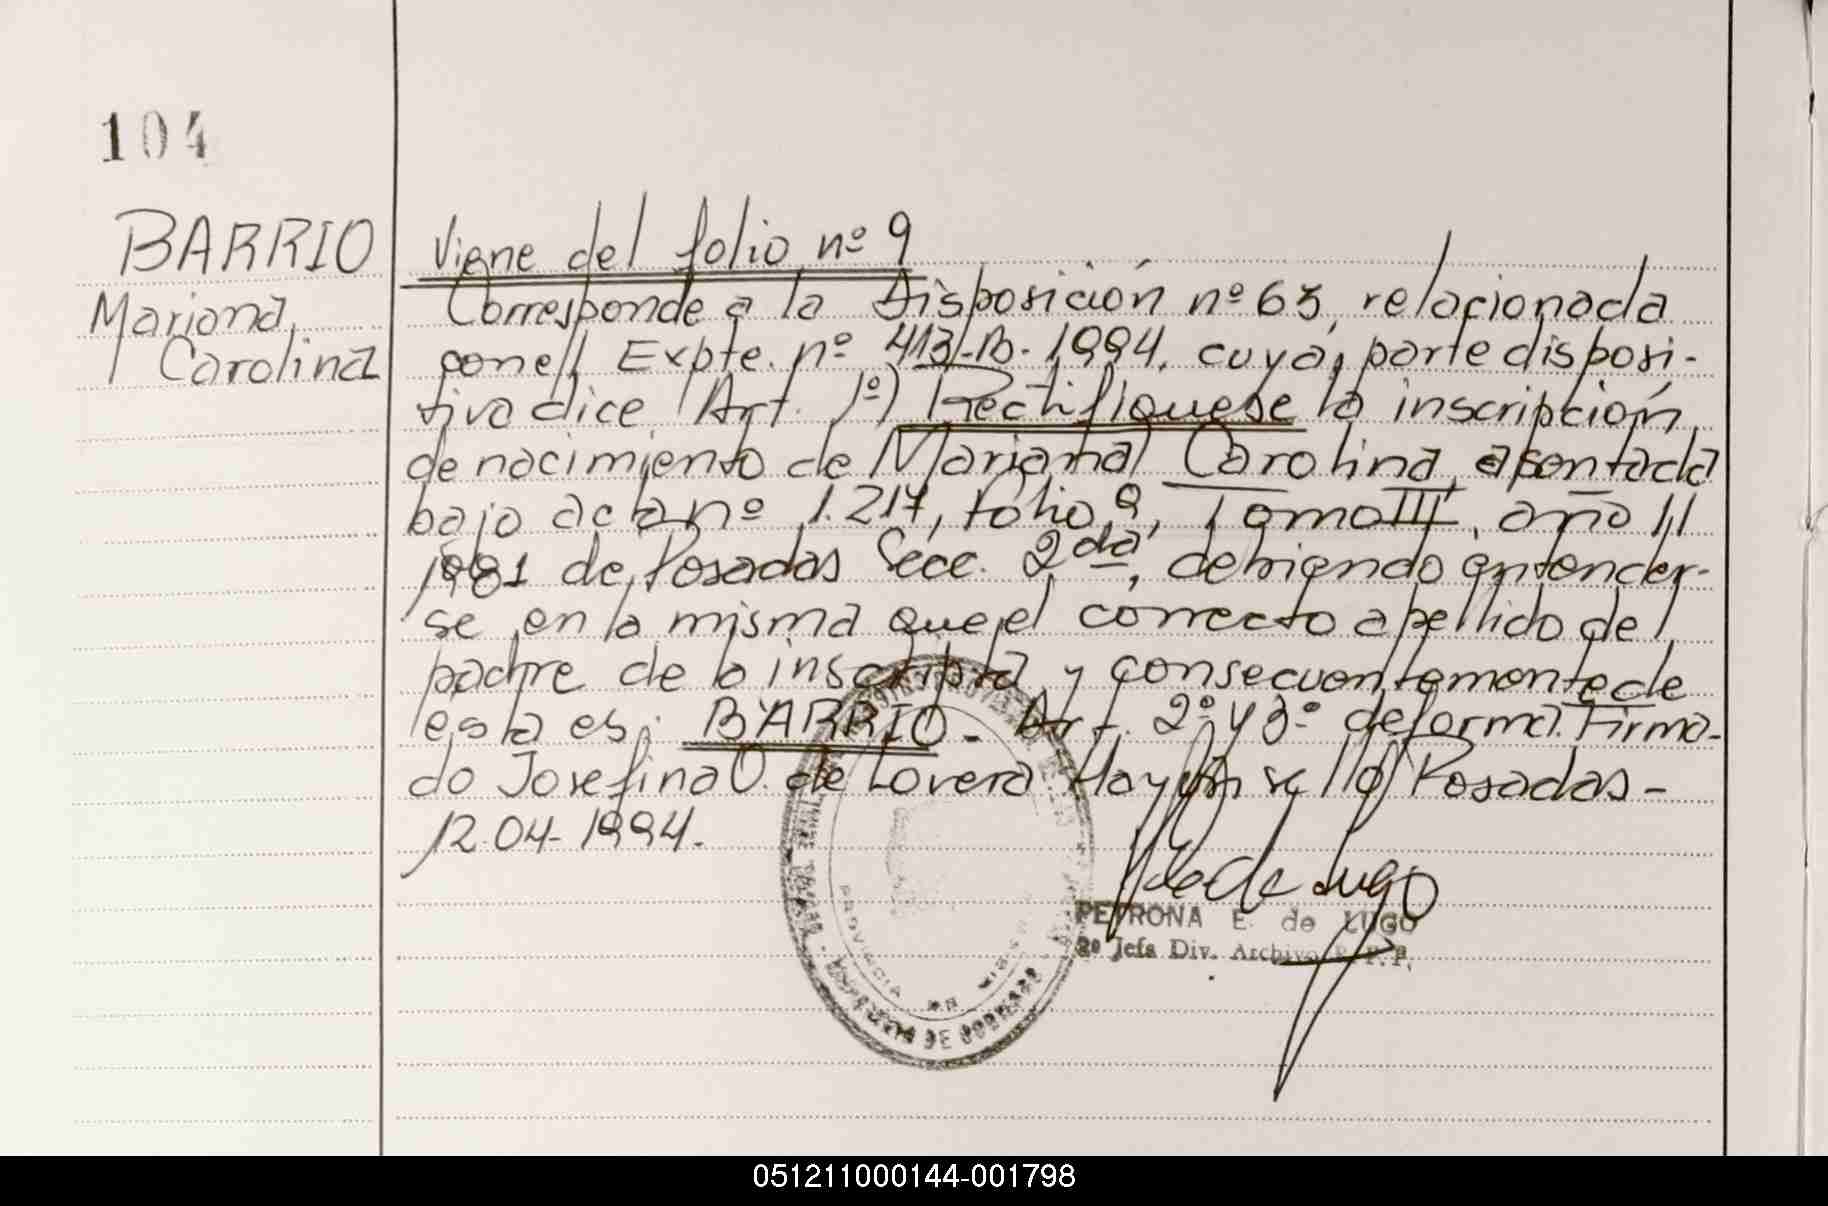 104
BARRIO
Mariana
Carolina
Viene del folio nº 9
Corresponde a la Disposición nº 65, relacionada
con el Expte. nº 413-B-1994, cuya parte disposi-
tiva dice Art. 1º) Rectifiquese la inscripción
de nacimiento de Mariana Carolina, asentada
bajo acta nº 1.217, folio 9, Tomo III, año
1981 de Posadas Secc. 2da, debiendo entender-
se en la misma que el correcto apellido del
padre de la inscripta y consecuentemente de
esta es: BARRIO- Art. 2º y 3º de forma. Firma-
do Josefina O. de Lovera Hay un sello Posadas-
12-04-1994.
de Lugo
PETRONA E. de LUGO
2º Jefa Div. Archivo R. P. P.
PROVINCIA DE MISIONES
MINISTERIO DE GOBIERNO
051211000144-001798